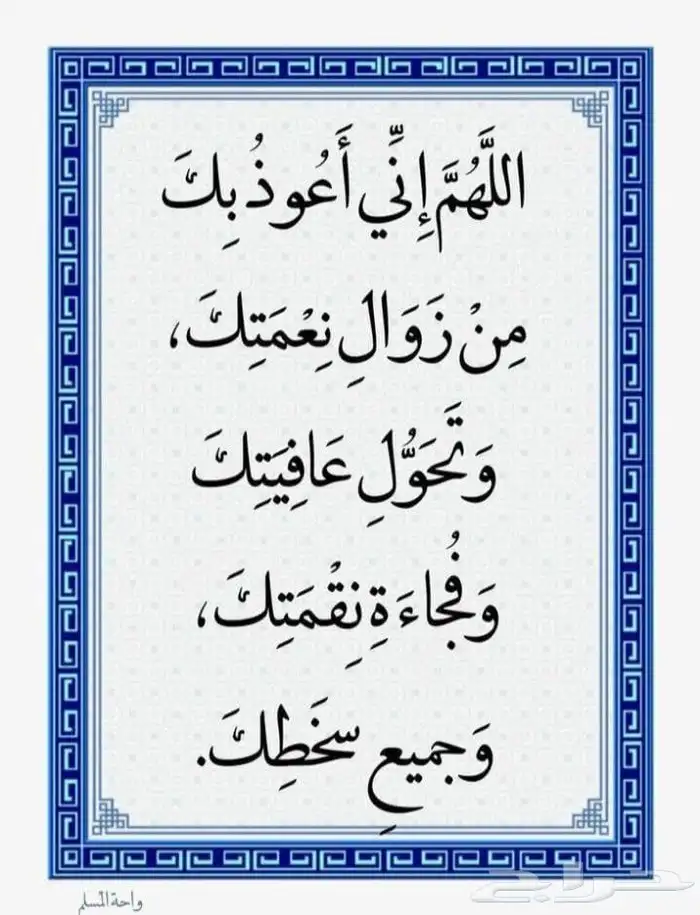 اللَّهُمَّ إِنِّي أَعُوذُ بِكَ
مِنْ زَوَالِ نِعْمَتِكَ،
وَتَحَوُّلِ عَافِيَتِكَ
وَفُجَاءَةِ نِقْمَتِكَ،
وَجَمِيعِ سَخَطِكَ.
واحة المسلم
حراج